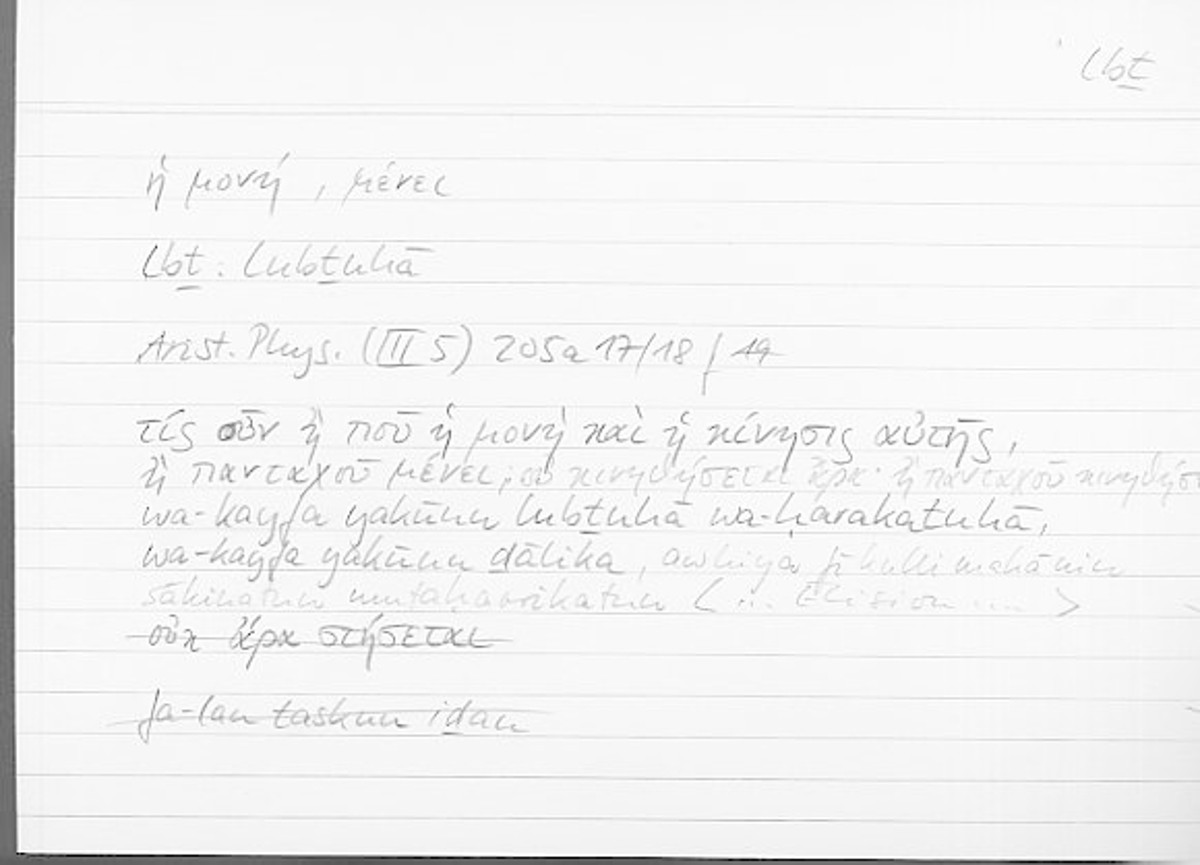 lbṯ
ἡ μονή, μένει
lbṯ: lubṯuhā
Arist. Phys. (III 5) 205a 17/18 / 19
τίς οὖν ἢ ποῦ ἡ μονὴ καὶ ἡ κίνησις αὐτῆς,
ἢ πανταχοῦ μένει; οὐ κινηθήσεται ἄρα· ἢ πανταχοῦ
wa-kayfa yakūnu lubṯuhā wa-ḥarakatuhā,
wa-kayfa yakūnu ḏālika, aw hiya fī kulli makānin
sākinatun mutaḥarrikatun < ... Elision .... >
οὐκ ἄρα στήσεται
fa-lan taskun iḏan